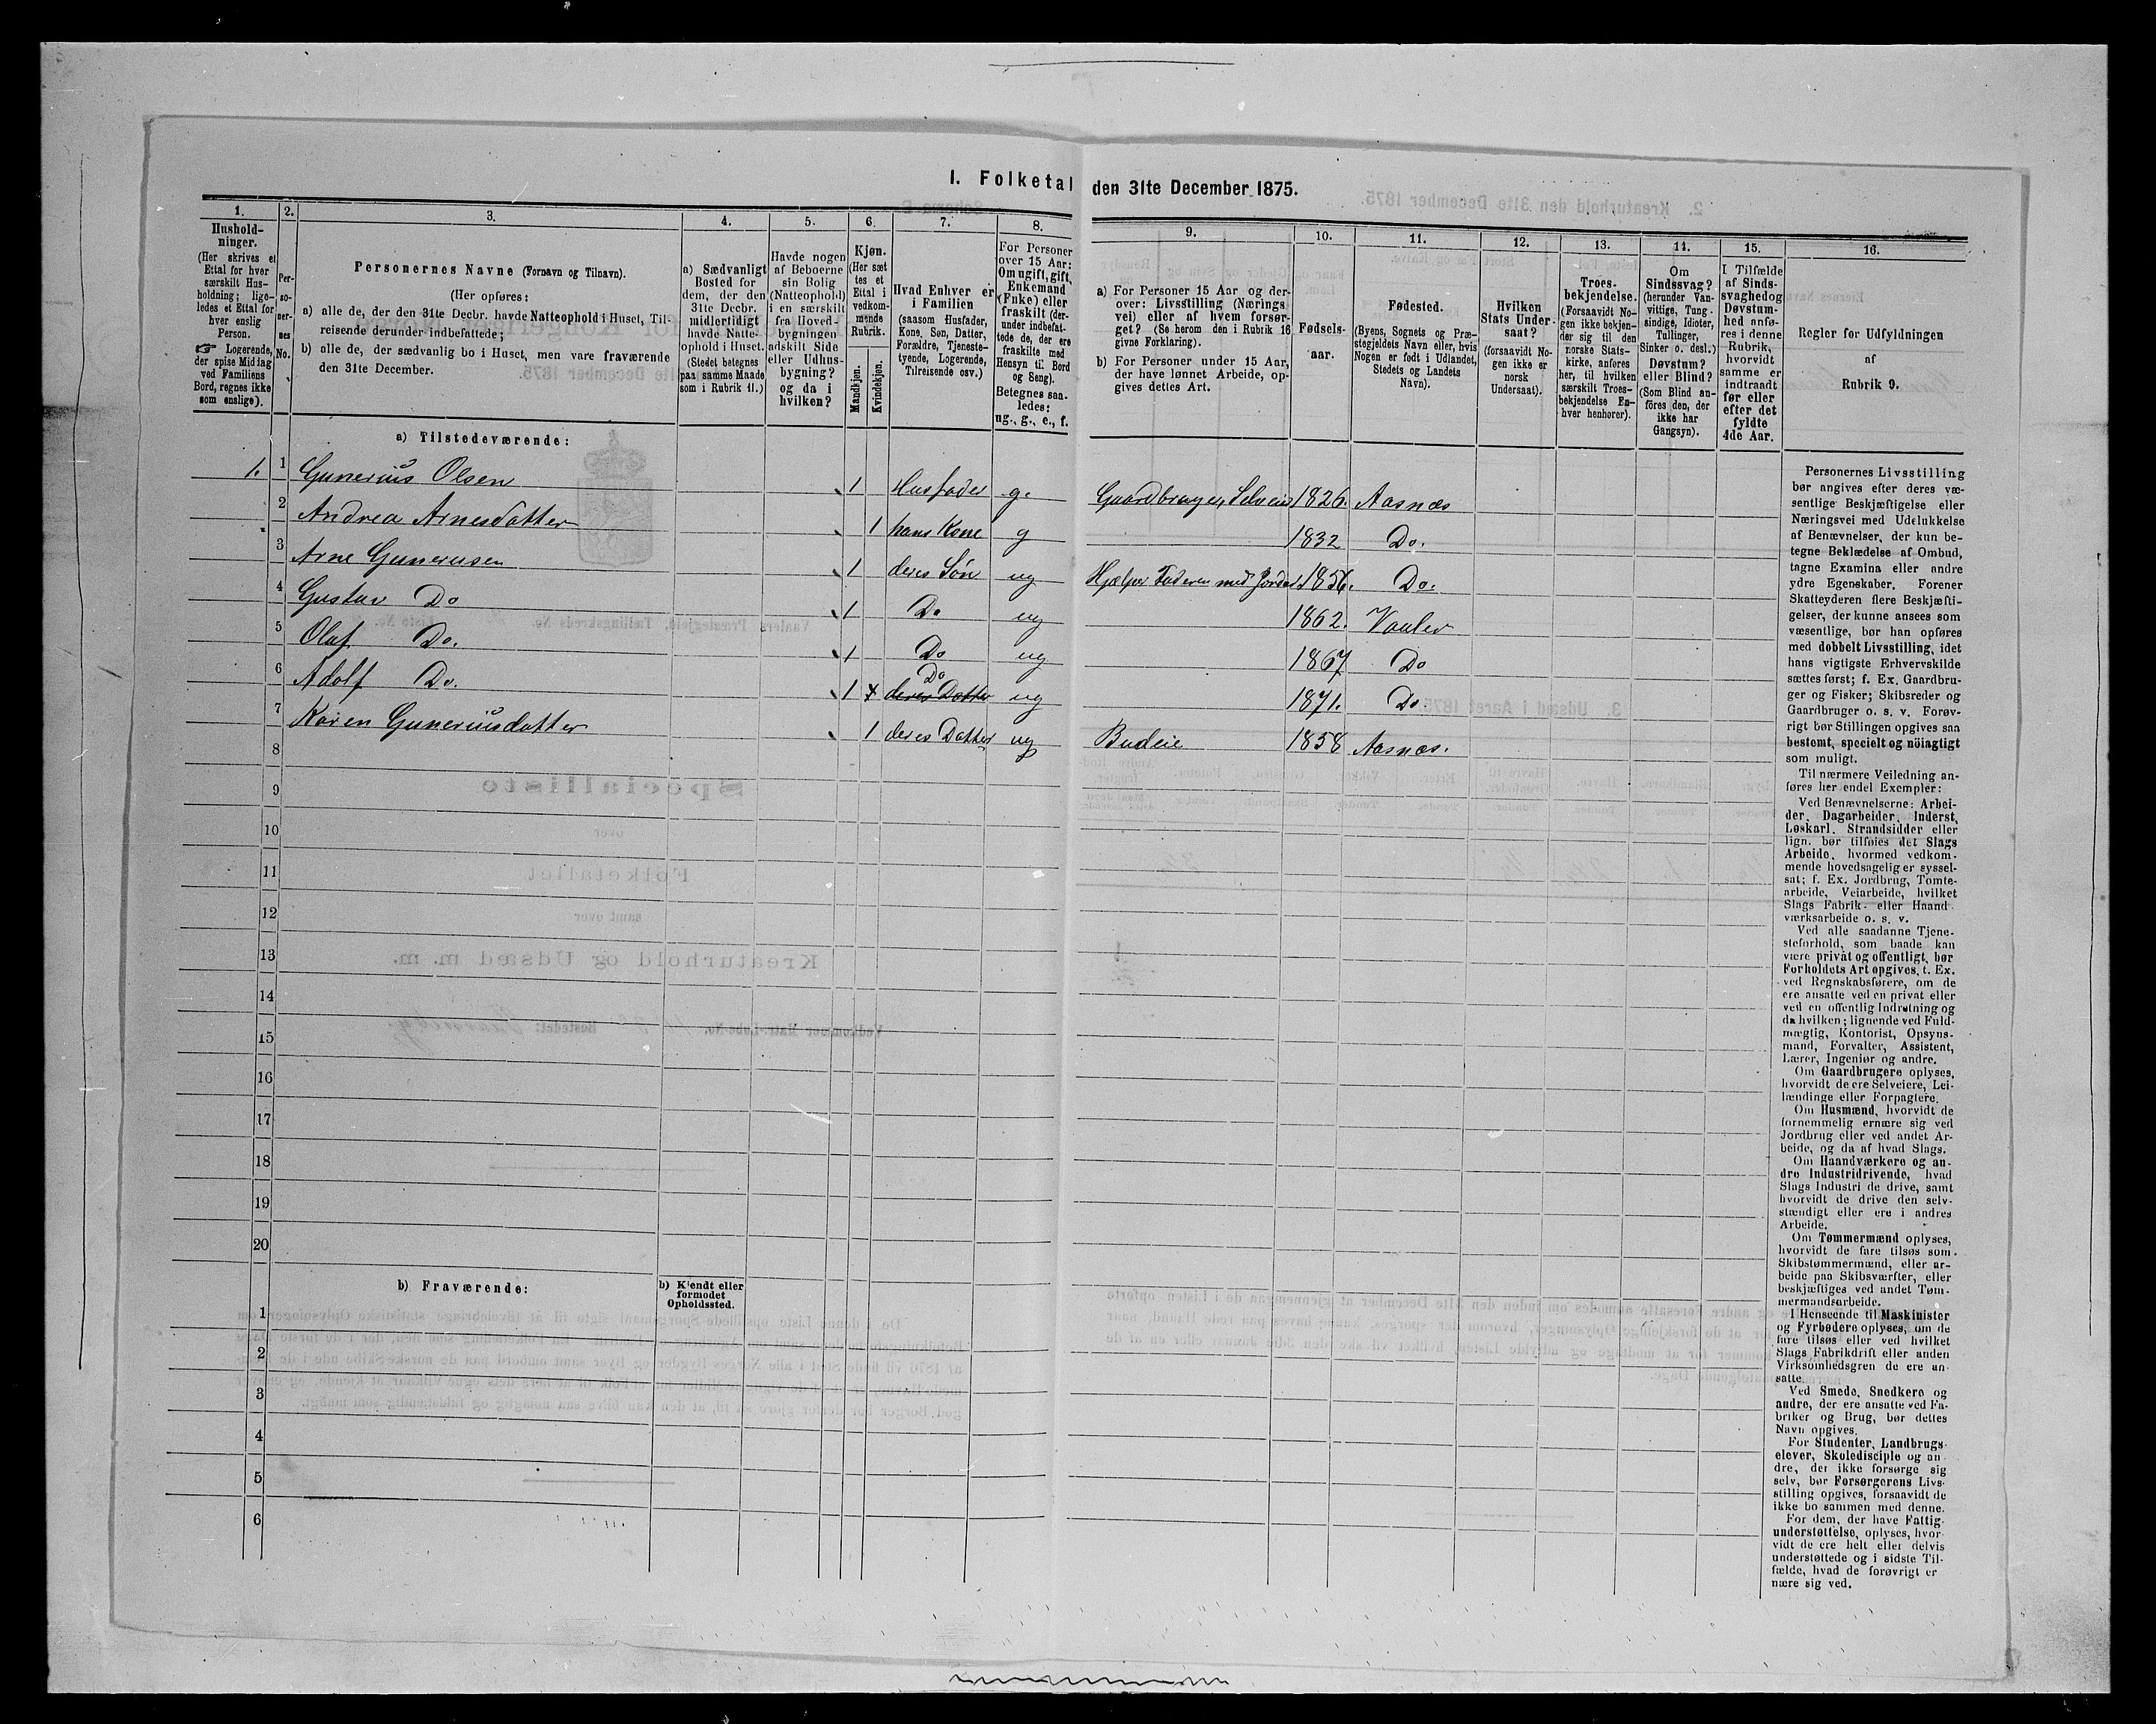 I. Folketal den 31te December 1875.
1.
Hushold-
ninger.
(Her skrives et
Ettal for hver
særskilt Hus-
holdning; lige-
ledes et Ettal for
hver enslig
Person.
☞ Logerende,
der spise Middag
ved Familiens
Bord, regnes ikke
som enslige).
2.
Per-
so-
ner-
nes
No.
3.
Personernes Navne (Fornavn og Tilnavn).
(Her opføres:
a) alle de, der den 31te Decbr. havde Natteophold i Huset, Til-
reisende derunder indbefattede;
b) alle de, der sædvanlig bo i Huset, men vare fraværende
den 31te December.
4.
a) Sædvanligt
Bosted for
dem, der den
31te Decbr.
midlertidigt
havde Natte-
ophold i Huset.
(Stedet betegnes
paa samme Maade
som i Rubrik 11.)
5.
Havde nogen
af Beboerne
sin Bolig
(Natteophold)
i en særskilt
fra Hoved-
bygningen
adskilt Side
eller Udhus-
bygning?
og da i
hvilken?
6.
Kjøn.
(Her sæt
tes et
Ettal i
vedkom-
mende
Rubrik.
Mandkjøn.
Kvindekjøn.
7.
Hvad Enhver er
i Familien
(saasom Husfader,
Kone, Søn, Datter,
Forældre, Tjeneste-
tyende, Logerende,
Tilreisende osv.)
8.
For Personer
over 15 Aar:
Om ugift, gift,
Enkemand
(Enke) eller
fraskilt (der-
under indbefat-
tede de, der ere
fraskilte med
Hensyn til Bord
og Seng).
Betegnes saa-
ledes:
ug., g., e., f.
9.
a) For Personer 15 Aar og der-
over: Livsstilling (Nærings
vei) eller af hvem forsør-
get? (Se herom den i Rubrik 16
givne Forklaring).
b) For Personer under 15 Aar,
der have lønnet Arbeide, op-
gives dettes Art.
10.
Fødsels-
aar.
11.
Fødested.
(Byens, Sognets og Præ-
stegjeldets Navn eller, hvis
Nogen er født i Udlandet,
Stedets og Landets
Navn).
12.
Hvilken
Stats Under-
saat?
(forsaavidt No-
gen ikke er
norsk
Undersaat).
13.
Troes-
bekjendelse.
(Forsaavidt No-
gen ikke bekjen-
der sig til den
norske Stats-
kirke, anføres
her, til hvilken
særskilt Troes-
bekjendelse En-
hver henhører).
14.
Om
Sindssvag?
(herunder Van-
vittige, Tung-
sindige, Idioter,
Tullinger,
Sinker o. desl.)
Døvstum?
eller Blind?
(Som Blind an-
føres den, der
ikke har
Gangsyn).
15.
I Tilfælde
af Sinds-
svaghed og
Døvstum-
hed anfø-
res i denne
Rubrik,
hvorvidt
samme er
indtraadt
før eller
efter det
fyldte
4de Aar.
16.
Regler for Udfyldningen
af
Rubrik 9.
a) Tilstedeværende:
1. 1 Gunerius Olsen 1 Husfader g. Gaardbruger, Selveier 1826. Aasnæs
2 Andrea Arnesdatter 1 hans Kone g 1832 Do.
3 Arne Gunerusen 1 deres Søn ug Hjælper Faderen med Jordar. 1856. Do.
4 Gustav Do 1 Do ug 1862. Vaaler
5 Oluf Do. 1 Do ug 1867 Do
6 Adolf Do. 1 Do deres Datter ug 1871. Do.
7 Karen Guneriusdatter 1 deres Datter ug Budeie 1858 Aasnæs.
8
9
10
11
12
13
14
15
16
17
18
19
20
b) Fraværende:
b) Kjendt eller
formodet
Opholdssted.
1
2
3
4
5
6
Personernes Livsstilling
bør angives efter deres væ-
sentlige Beskjæftigelse eller
Næringsvei med Udelukkelse
af Benævnelser, der kun be-
tegne Beklædelse af Ombud,
tagne Examina eller andre
ydre Egenskaber. Forener
Skatteyderen flere Beskjæfti-
gelser, der kunne ansees som
væsentlige, bør han opføres
med dobbelt Livsstilling, idet
hans vigtigste Erhvervskilde
sættes først; f. Ex. Gaardbru-
ger og Fisker; Skibsreder og
Gaardbruger o. s. v. Forøv-
rigt bør Stillingen opgives saa
bestemt, specielt og nøiagtigt
som muligt.
Til nærmere Veiledning an-
føres her endel Exempler:
Ved Benævnelserne: Arbei-
der, Dagarbeider, Inderst,
Løskarl, Strandsidder eller
lign. bør tilføies det Slags
Arbeide, hvormed vedkom-
mende hovedsagelig er syssel-
sat; f. Ex. Jordbrug, Tomte-
arbeide, Veiarbeide, hvilket
Slags Fabrik- eller Haand
værksarbeide o. s. v.
Ved alle saadanne Tjene-
steforhold, som baade kan
være privat og offentligt, bør
Forholdets Art opgives, t. Ex.
ved Regnskabsførere, om de
ere ansatte ved en privat eller
ved en offentlig Indretning og
da hvilken; lignende ved Fuld-
mægtig, Kontorist, Opsyns-
mand, Forvalter, Assistent,
Lærer, Ingeniør og andre.
Om Gaardbrugere oplyses,
hvorvidt de ere Selveiere, Lei-
lændinge eller Forpagtere.
Om Husmænd, hvorvidt de
fornemmelig ernære sig ved
Jordbrug eller ved andet Ar-
beide, og da af hvad Slags.
Om Haandværkere og an-
dre Industridrivende, hvad
Slags Industri de drive, samt
hvorvidt de drive den selv-
stændigt eller ere i andres
Arbeide.
Om Tømmermænd oplyses,
hvorvidt de fare tilsøs som
Skibstømmermænd, eller ar-
beide paa Skibsværfter, eller
beskjæftiges ved andet Tøm-
mermandsarbeide.
I Henseende til Maskinister
og Fyrbødere oplyses, om de
fare tilsøs eller ved hvilket
Slags Fabrikdrift eller anden
Virksomhedsgren de ere an-
satte.
Ved Smede, Snedkere og
andre, der ere ansatte ved Fa-
briker og Brug, bør dettes
Navn opgives.
For Studenter, Landbrugs-
elever, Skoledisciple og an-
dre, der ikke forsørge sig
selv, bør Forsørgerens Livs-
stilling opgives, forsaavidt de
ikke bo sammen med denne.
For dem, der have Fattig-
understøttelse, oplyses, hvor-
vidt de ere helt eller delvis
understøttede og i sidste Til-
fælde, hvad de forøvrigt er
nære sig ved.